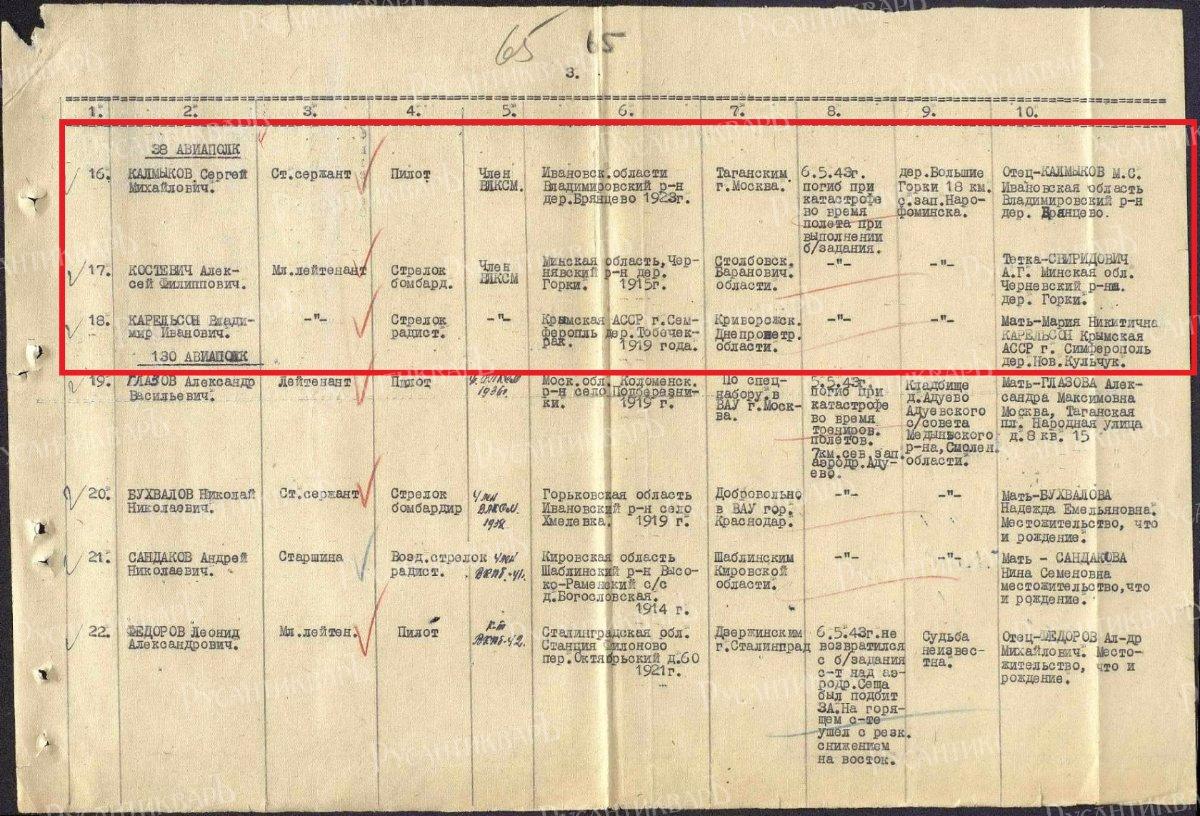 65 65
3.
1. 2. 3. 4. 5. 6. 7. 8. 9. 10.
38 АВИАПОЛК
16. КАЛМЫКОВ Сергей
Михайлович.
Ст.сержант
Пилот
Член
ВЛКСМ.
Ивановск.области
Владимировский р-н
дер.Брянцево 1923г.
Таганским
г.Москва.
6.5.43г.
погиб при
катастрофе
во время
полета при
выполнении
б/задания.
дер.Большие
Горки 18 км.
с.зап.Наро-
фоминска.
Отец-КАЛМЫКОВ М.С.
Ивановская область
Владимировский р-н
дер. Брянцево.
17. КОСТЕВИЧ Алек-
сей Филиппович.
Мл.лейтенант
Стрелок
бомбард.
Член
ВЛКСМ
Минская область, Чер-
нявский р-н дер.
Горки. 1915г.
Столбовск.
Баранович.
области.
-"-
-"-
Тетка-СВИРИДОВИЧ
А.Г. Минская обл.
Черневский р-нш.
дер. Горки.
18. КАРЕЛЬСОН Влади-
мир Иванович.
-"-
Стрелок
радист.
-"-
Крымская АССР г.Сим-
ферополь дер.Тобечек-
рак. 1919 года.
Криворожск.
Днепрометр.
области.
-"-
-"-
Мать-Мария Никитична
КАРЕЛЬСОН Крымская
АССР г. Симферополь
дер.Нов.Кульчук.
130 АВИАПОЛК
19. ГЛАЗОВ Александр
Васильевич.
Лейтенант
Пилот
1936г.
Моск.обл. Коломенск.
р-н село Подберезни-
ки. 1919 г.
По спец-
набору в
ВАУ г.Моск-
ва.
5.5.43г.
погиб при
катастрофе
во время
трениров.
полетов.
7км.сев.зап.
аэродр.Аду-
ево.
Кладбище
д.Адуево
Адуевского
с/совета
Медынского
р-на,Смолен.
области.
Мать-ГЛАЗОВА Алек-
сандра Максимовна
Москва, Таганская
пл. Народная улица
д.8 кв. 15
20. БУХВАЛОВ Николай
Николаевич.
Ст.сержант
Стрелок
бомбардир
Член
ВЛКСМ.
Горьковская область
Ивановский р-н село
Хмелевка. 1919 г.
Добровольно
в ВАУ гор.
Краснодар.
-"-
-"-
Мать-БУХВАЛОВА
Надежда Емельяновна.
Местожительство, что
и рождение.
21. САНДАКОВ Андрей
Николаевич.
Старшина
Возд.стрелок
радист.
Член
ВКПб-41.
Кировская область
Шаблинский р-н Высо-
ко-Раменский с/с
д.Богословская.
1914 г.
Шаблинским
Кировской
области.
-"-
-"-
Мать - САНДАКОВА
Нина Семеновна
местожительство,что
и рождение.
22. ФЕДОРОВ Леонид
Александрович.
Мл.лейтен.
Пилот
К-т
ВКПб-42.
Сталинградская обл.
Станция Филоново
пер.Октябрьский д.60
1921г.
Дзержинским
г.Сталинград
6.5.43г.не
возвратился
с б/задания
с-т над аэ-
родр.Сеща
был подбит
ЗА.На горя-
щем с-те
ушел с резк.
снижением
на восток.
Судьба
неизвес-
тна.
Отец-ФЕДОРОВ Ал-др
Михайлович. Место-
жительство, что и
рождение.